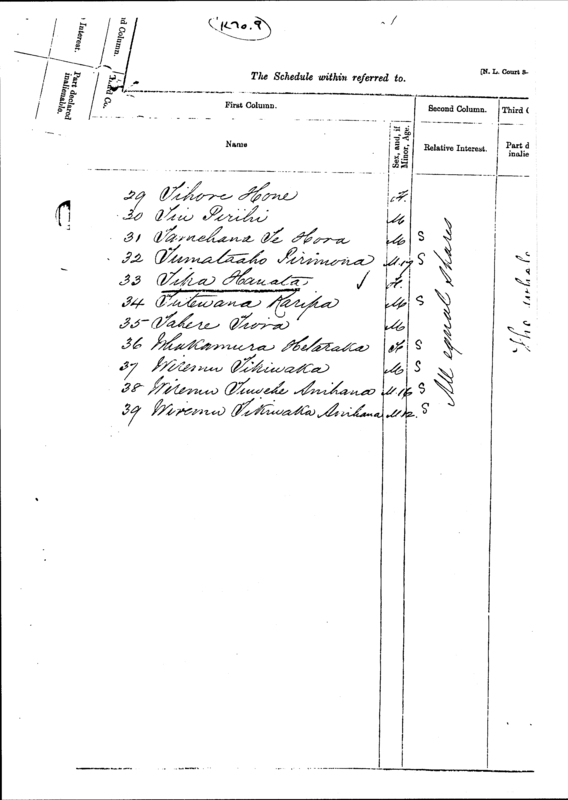 K70.9
d Column.
Interest.
Third Co.
Part declared
inalienable.
[N. L. Court S-
The Schedule within referred to.
First Column. Second Column. Third C
Name Sex, and, if Minor, Age. Relative Interest. Part d
inalie
29 Tihore Hone F.
30 Tiu Pirihi M
31 Tamehana Te Hora M S
32 Tumataaho Pirimona M. 17 S
33 Tika Hauata F.
34 Tutewana Karipa M S
35 Tahere Tiora M
36 Whakamura Hetaraka F S
37 Wiremu Tikiwaka M S
38 Wiremu Anihana M. 16 S
39 Wiremu Tikiwaka Anihana M 12. S
All equal shares
The whole